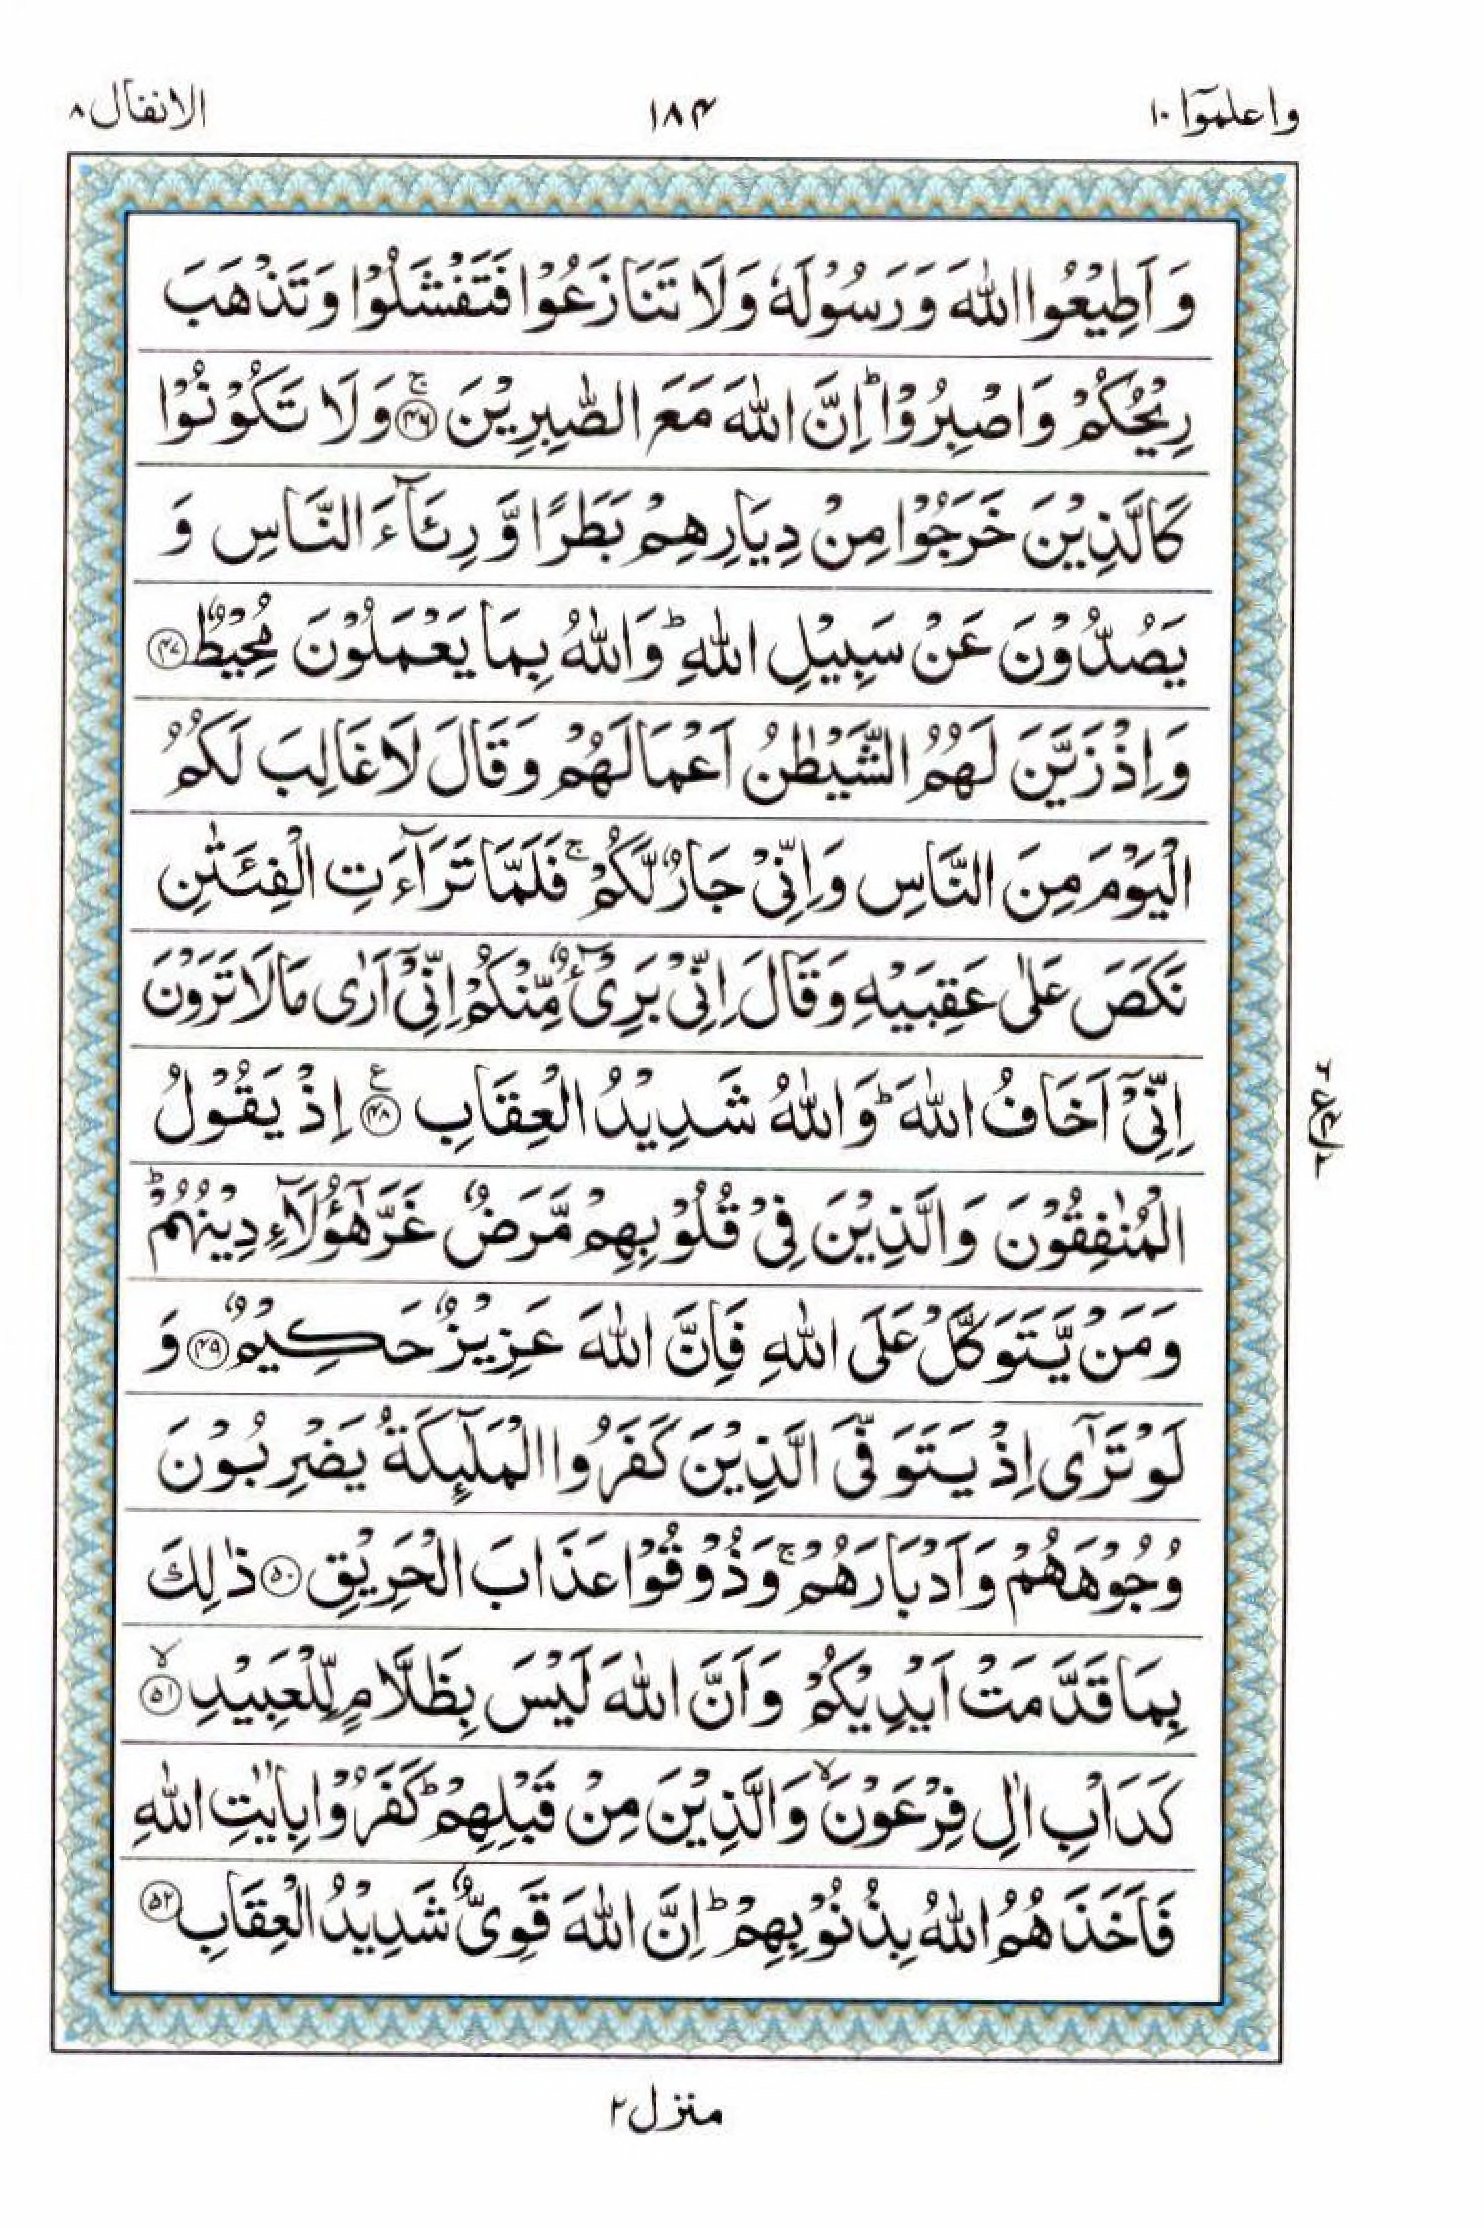 واعلموٓا ١٠
١٨٤
الانفال ٨
وَ اَطِيْعُوا اللّٰهَ وَ رَسُوْلَهٗ وَ لَا تَنَازَعُوْا فَتَفْشَلُوْا وَ تَذْهَبَ
رِيْحُكُمْ وَ اصْبِرُوْاؕ اِنَّ اللّٰهَ مَعَ الصّٰبِرِيْنَۚ ﴿۴۶﴾ وَ لَا تَكُوْنُوْا
كَالَّذِيْنَ خَرَجُوْا مِنْ دِيَارِهِمْ بَطَرًا وَّ رِئَآءَ النَّاسِ وَ
يَصُدُّوْنَ عَنْ سَبِيْلِ اللّٰهِؕ وَ اللّٰهُ بِمَا يَعْمَلُوْنَ مُحِيْطٌ ﴿۴۷﴾
وَ اِذْ زَيَّنَ لَهُمُ الشَّيْطٰنُ اَعْمَالَهُمْ وَ قَالَ لَا غَالِبَ لَكُمُ
الْيَوْمَ مِنَ النَّاسِ وَ اِنِّيْ جَارٌ لَّكُمْۚ فَلَمَّا تَرَآءَتِ الْفِئَتٰنِ
نَكَصَ عَلٰى عَقِبَيْهِ وَ قَالَ اِنِّيْ بَرِيْٓءٌ مِّنْكُمْ اِنِّيْۤ اَرٰى مَا لَا تَرَوْنَ
اِنِّيْۤ اَخَافُ اللّٰهَؕ وَ اللّٰهُ شَدِيْدُ الْعِقَابِ ﴿۴۸﴾ ع اِذْ يَقُوْلُ
الْمُنٰفِقُوْنَ وَ الَّذِيْنَ فِيْ قُلُوْبِهِمْ مَّرَضٌ غَرَّ هٰۤؤُلَآءِ دِيْنُهُمْؕ
وَ مَنْ يَّتَوَكَّلْ عَلَى اللّٰهِ فَاِنَّ اللّٰهَ عَزِيْزٌ حَكِيْمٌ ﴿۴۹﴾ وَ
لَوْ تَرٰۤى اِذْ يَتَوَفَّى الَّذِيْنَ كَفَرُوا الْمَلٰٓىِٕكَةُ يَضْرِبُوْنَ
وُجُوْهَهُمْ وَ اَدْبَارَهُمْۚ وَ ذُوْقُوْا عَذَابَ الْحَرِيْقِ ﴿۵۰﴾ ذٰلِكَ
بِمَا قَدَّمَتْ اَيْدِيْكُمْ وَ اَنَّ اللّٰهَ لَيْسَ بِظَلَّامٍ لِّلْعَبِيْدِۙ ﴿۵۱﴾
كَدَاْبِ اٰلِ فِرْعَوْنَۙ وَ الَّذِيْنَ مِنْ قَبْلِهِمْؕ كَفَرُوْا بِاٰيٰتِ اللّٰهِ
فَاَخَذَهُمُ اللّٰهُ بِذُنُوْبِهِمْؕ اِنَّ اللّٰهَ قَوِيٌّ شَدِيْدُ الْعِقَابِ ﴿۵۲﴾
منزل ٢